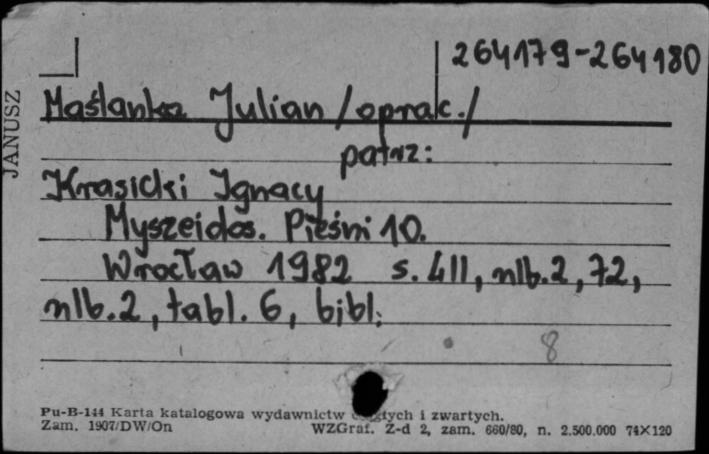 264179-264180
JANUSZ
Maślanka Julian /oprac./
patrz:
Krasicki Ignacy
Myszeidos. Pieśni 10.
Wrocław 1982 s. LII, nlb.2, 72,
nlb.2, tabl. 6, bibl.
8
Pu-B-144 Karta katalogowa wydawnictw ciągłych i zwartych.
Zam. 1907/DW/On WZGraf. Z-d 2, zam. 660/80, n. 2.500.000 74X120